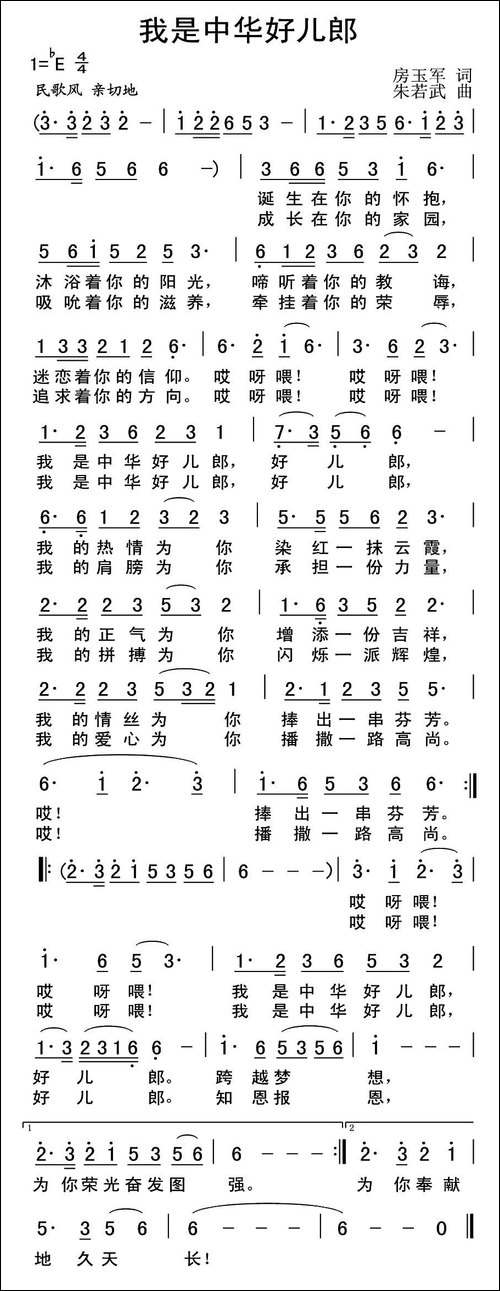 我是中华好儿郎
1=♭E 4/4
房玉军 词
民歌风 亲切地
朱若武 曲
(3· 3 2 3 2 – | 1 2 2 6 5 3 – | 1· 2 3 5 6· 1 2 3 |
1· 6 5 6 6 –) | 3 6 6 5 3 1 6· |
诞生在你的怀抱，
成长在你的家园，
5 6 1 5 2 5 3· | 6 1 2 3 6 2 3 2 |
沐浴着你的阳光， 啼听着你的教诲，
吸吮着你的滋养， 牵挂着你的荣辱，
1 3 3 2 1 2 6· | 6· 2 1 6· | 3· 6 2 3· |
迷恋着你的信仰。 哎呀喂！ 哎呀喂！
追求着你的方向。 哎呀喂！ 哎呀喂！
1· 2 3 6 2 3 1 | 7· 3 5 6 6 – |
我是中华好儿郎， 好儿郎，
我是中华好儿郎， 好儿郎，
6· 6 1 2 3 2 3 | 5· 5 5 6 2 3· |
我的热情为你 染红一抹云霞，
我的肩膀为你 承担一份力量，
2· 2 2 3 5 3 2 | 1· 6 3 5 2 2· |
我的正气为你 增添一份吉祥，
我的拼搏为你 闪烁一派辉煌，
2· 2 2 3 5 3 2 1 | 2· 1 2 3 5 5· |
我的情丝为你 捧出一串芬芳。
我的爱心为你 播撒一路高尚。
6· 1 2· 3 | 1· 6 5 3 6 6· :|
哎！ 捧出一串芬芳。
哎！ 播撒一路高尚。
|: (2· 3 2 1 5 3 5 6 | 6 – – –) | 3· 1 2· 3 |
哎呀喂！
哎呀喂！
1· 6 5 3· | 1· 2 3 6 5 3 2 |
哎呀喂！ 我是中华好儿郎，
哎呀喂！ 我是中华好儿郎，
1· 3 2 3 1 6 6 – | 1· 6 5 3 5 6 | 1 – – – |
好儿郎。 跨越梦想，
好儿郎。 知恩报恩，
1 2
2· 3 2 1 5 3 5 6 | 6 – – – :| 2· 3 2 1 |
为你荣光奋发图强。 为你奉献
5· 3 5 6 | 6 – – – | 6 – – 0 ‖
地久天长！